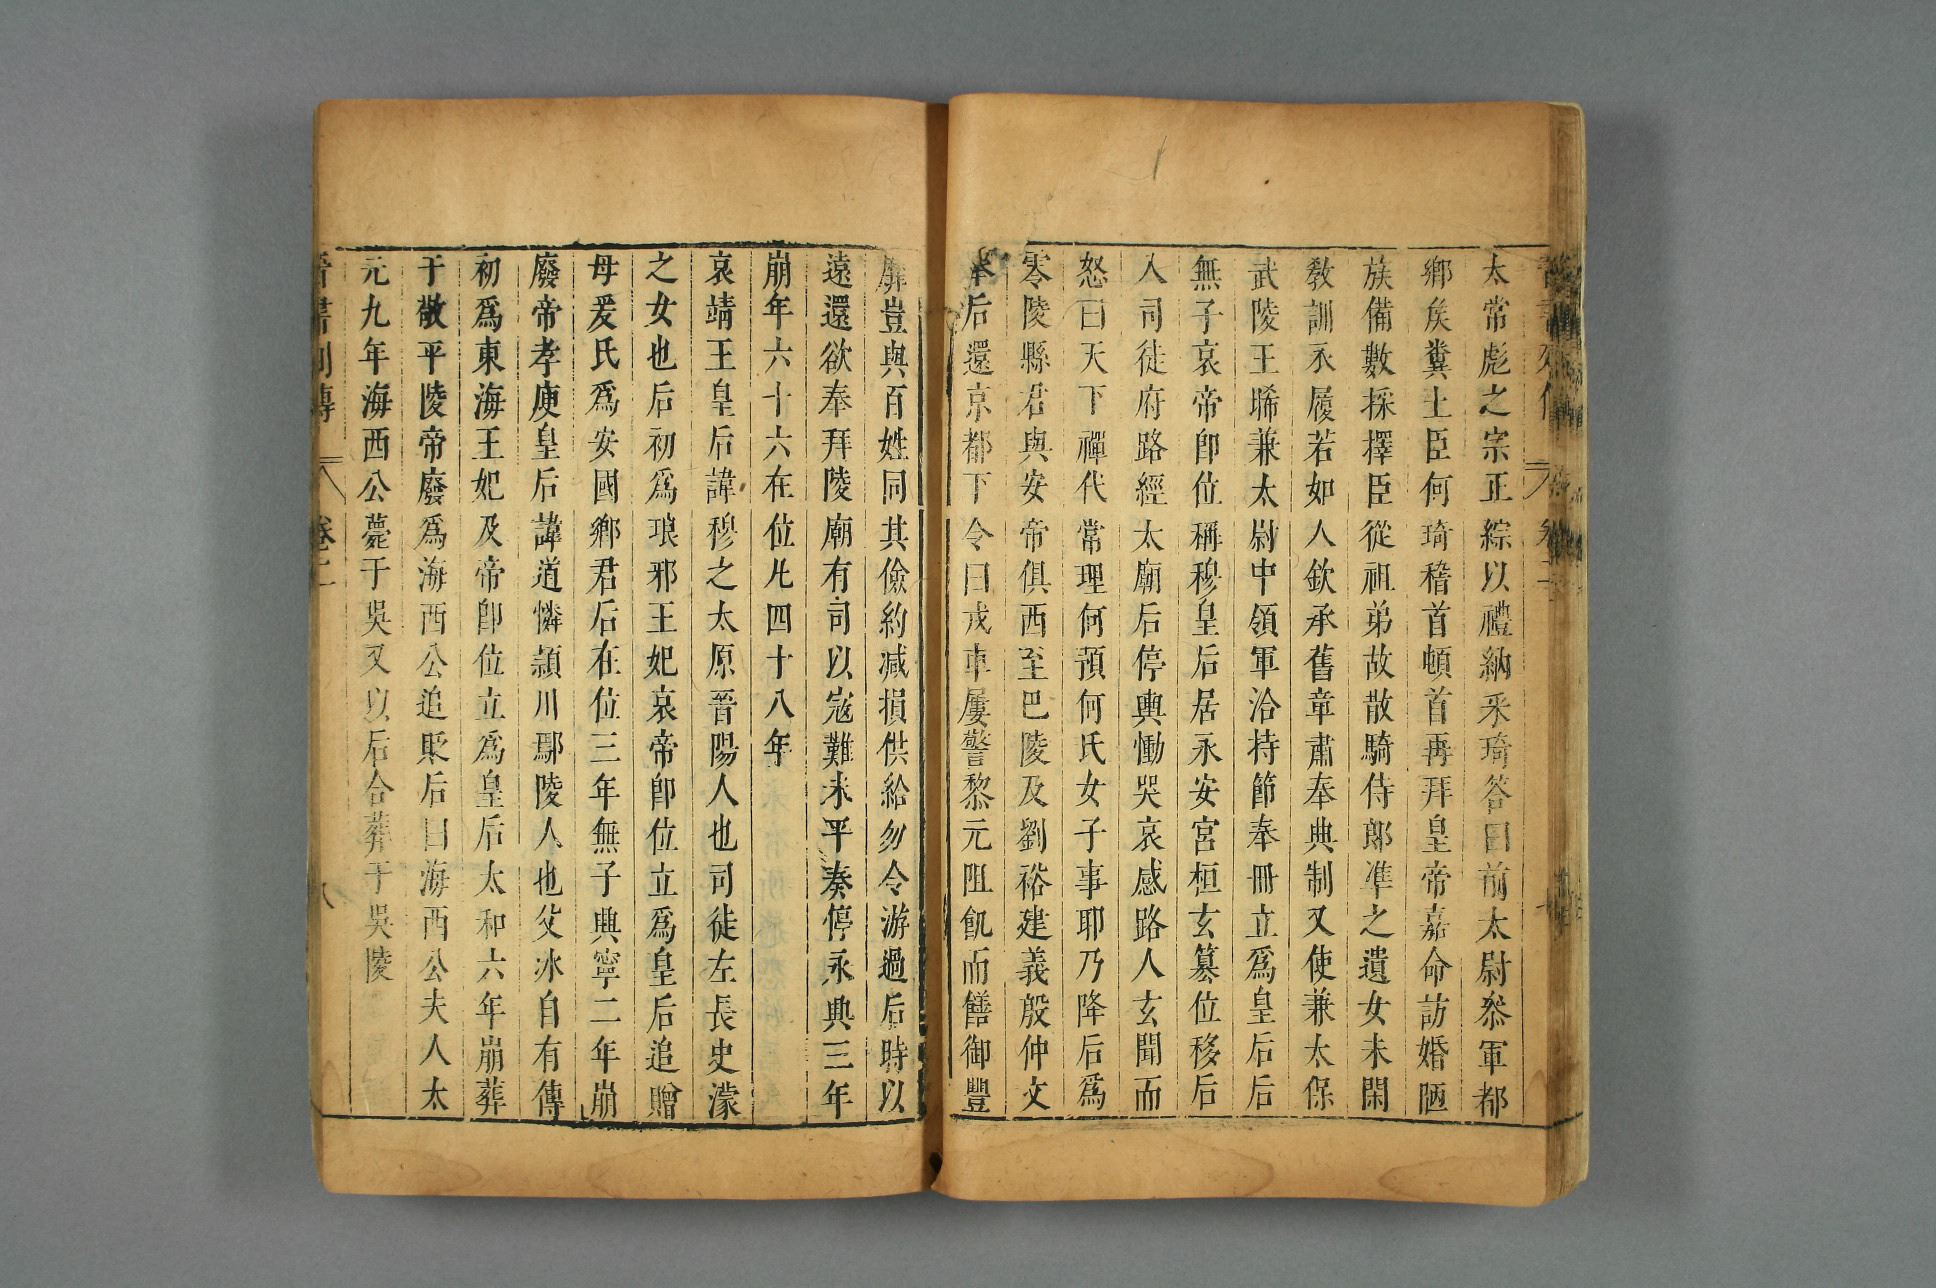 太常彪之宗正綜以禮納采琦答曰前太尉叅軍都
鄉矦糞土臣何琦稽首頓首再拜皇帝嘉命訪婚陋
族備數採擇臣從祖弟故散騎侍郎凖之遺女未閑
教訓衣履若如人欽承舊章肅奉典制又使兼太保
武陵王晞兼太尉中領軍洽持節奉冊立爲皇后后
無子哀帝卽位稱穆皇后居永安宮桓玄簒位移后
入司徒府路經太廟后停輿慟哭哀感路人玄聞而
怒曰天下禪代常理何預何氏女子事耶乃降后爲
零陵縣君與安帝俱西至巴陵及劉裕建義殷仲文
奉后還京都下令曰戎車屢警黎元阻飢而饍御豐
靡豈與百姓同其儉約减損供給勿令游過后時以
遠還欲奉拜陵廟有司以寇難未平奏停永興三年
崩年六十六在位凡四十八年
哀靖王皇后諱穆之太原晉陽人也司徒左長史濛
之女也后初爲琅邪王妃哀帝卽位立爲皇后追贈
母爰氏爲安國鄉君后在位三年無子興寧二年崩
廢帝孝庾皇后諱道憐頴川鄢陵人也父冰自有傳
初爲東海王妃及帝卽位立爲皇后太和六年崩葬
于敬平陵帝廢爲海西公追貶后曰海西公夫人太
元九年海西公薨于吳又以后合葬于吳陵
晉書列傳 卷二 八